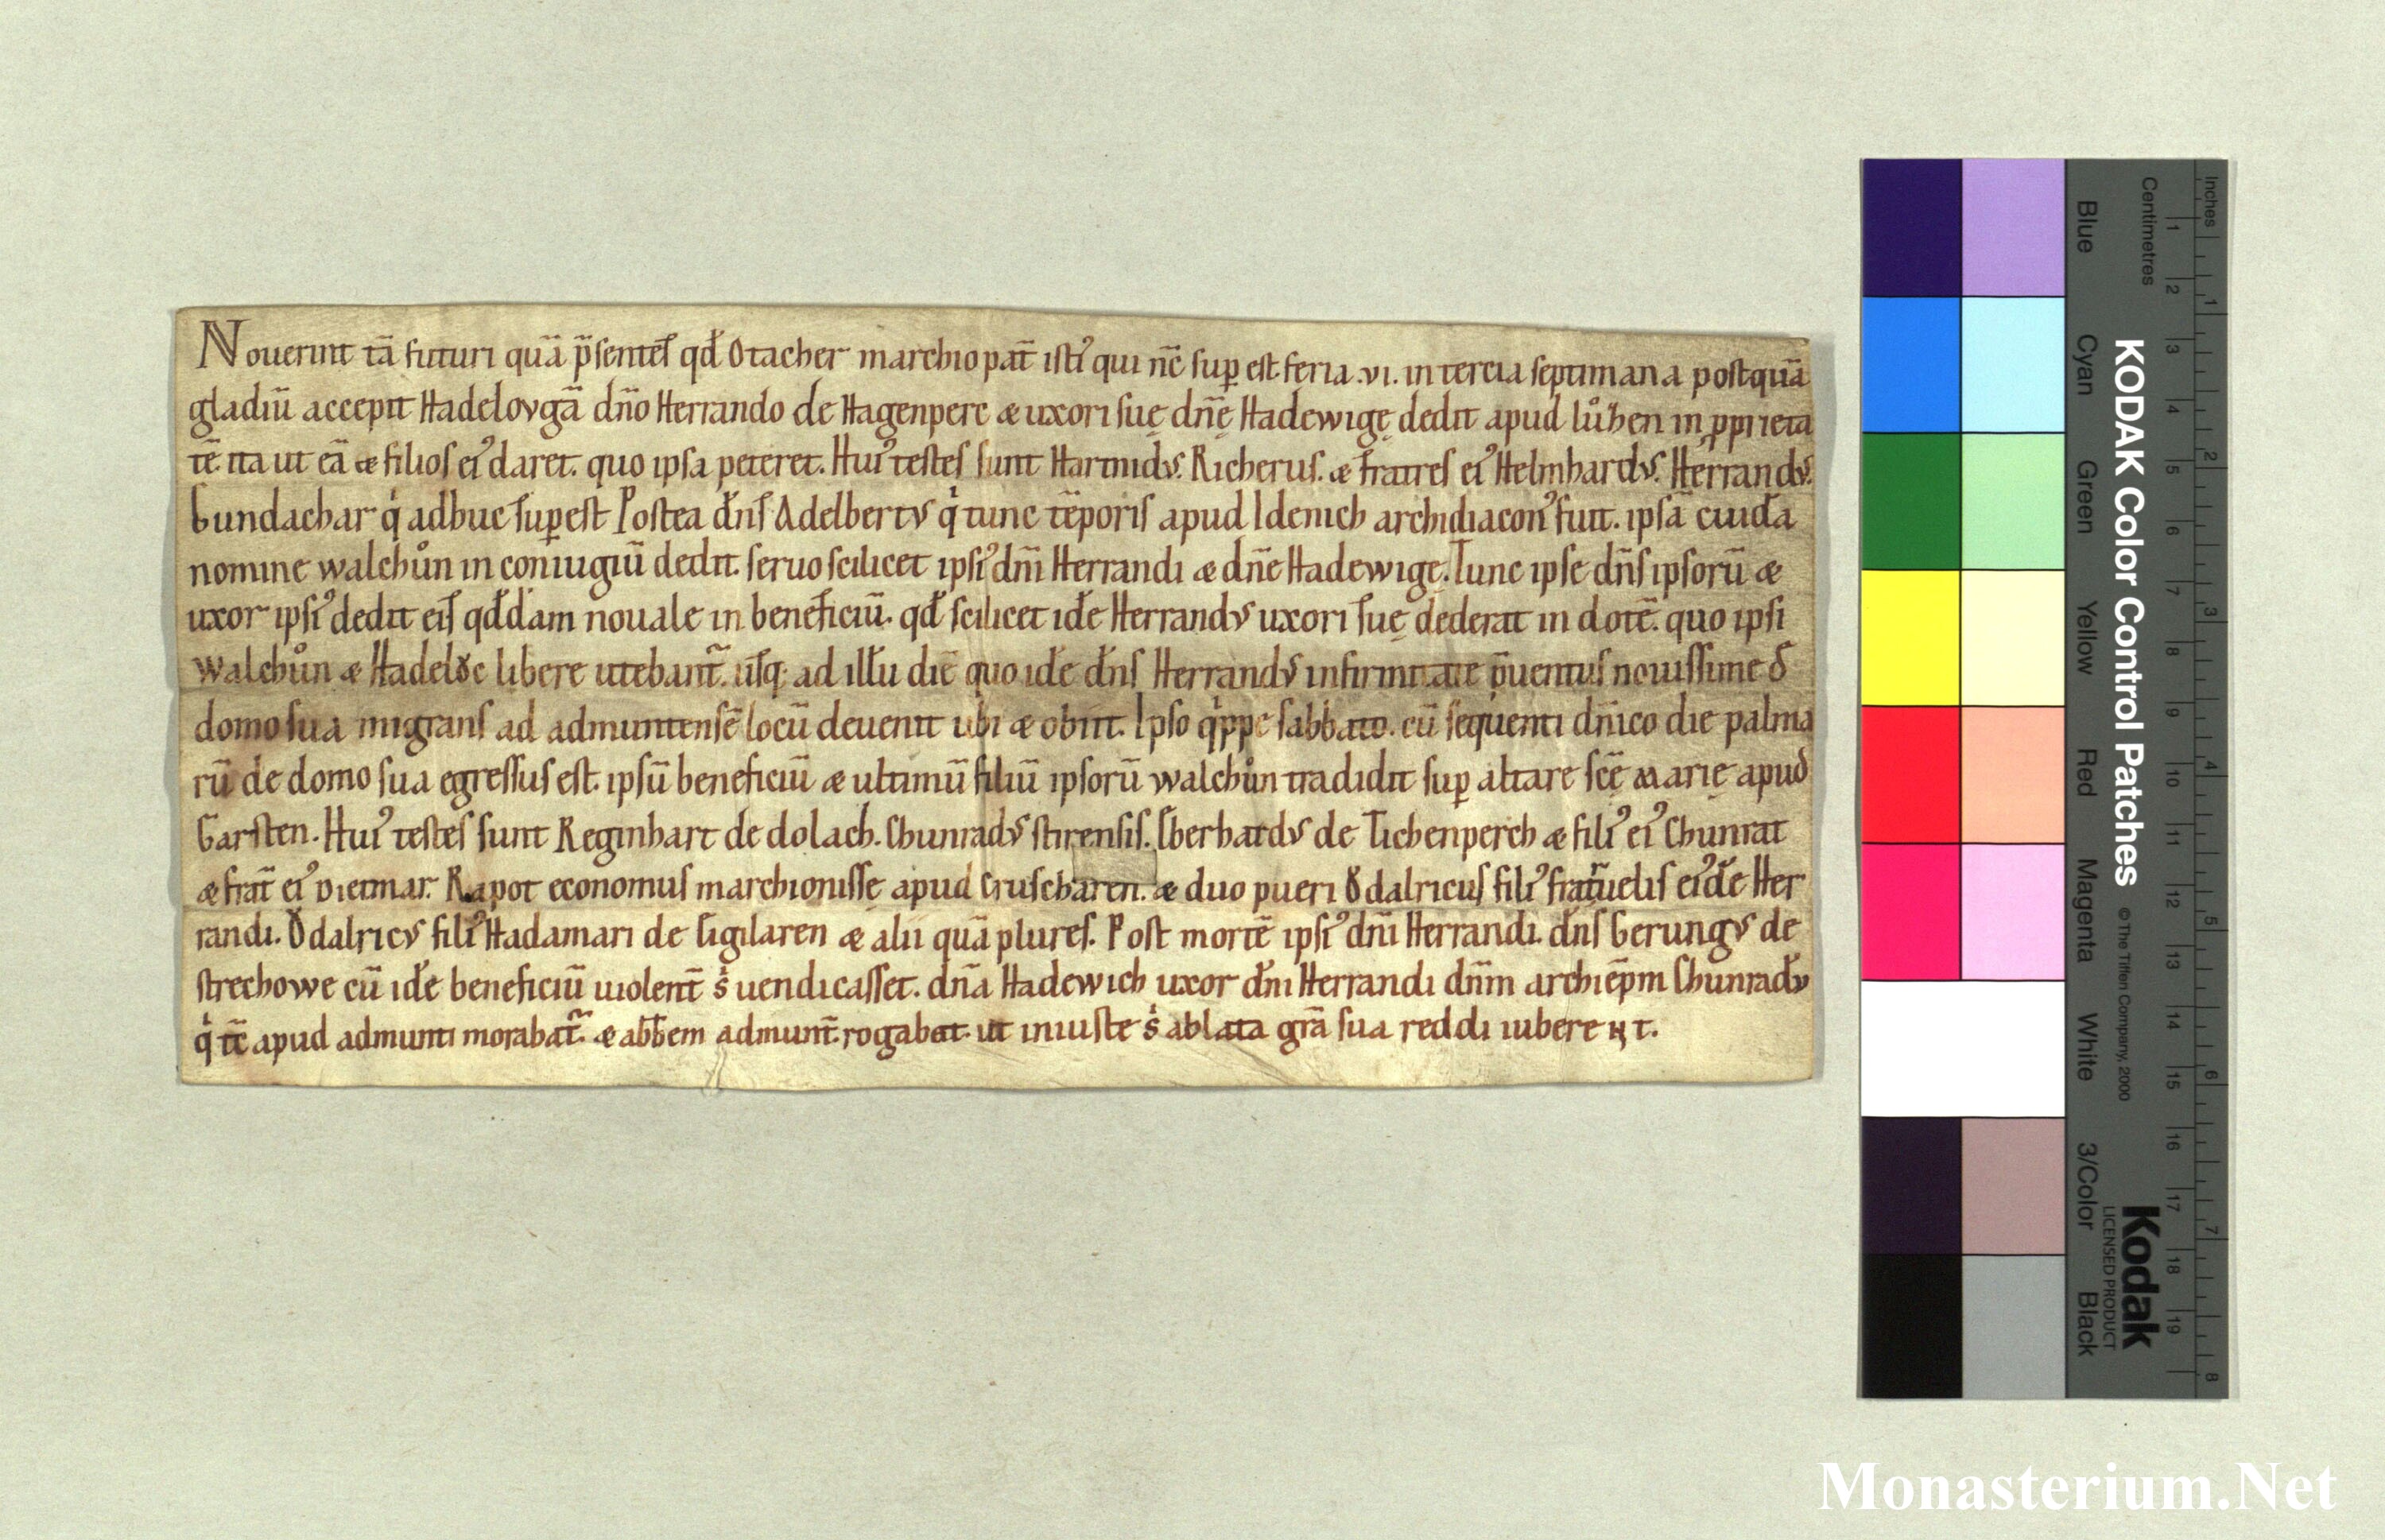 Nouerint tā futuri quā p̄sentes qd̄ Otacher marchio pat̄ istiꝰ qui nc̄ suꝑ est feria .vi. in tercia septimana postquā
gladiū accepit Hadelovgā dn̄o Herrando de Hagenperc æ uxori suę dn̄ę Hadewigę dedit apud lůben in ꝓprieta
tē. ita ut eā æ filios eiꝰ daret. quo ipsa peteret. Huiꝰ testes sunt Hartnidvs. Richerus. æ fratres eiꝰ Helmhardvs. Herrandvs.
Gundachar qͥ adhuc suꝑest Postea dn̄s Adelbertvs qͥ tunc tēporis apud Idenich archidiaconꝰ fuit. ipsā cuidā
nomine walchůn in coniugiū dedit. seruo scilicet ipsiꝰ dn̄i Herrandi æ dn̄e Hadewigę. Tunc ipse dn̄s ipsorū æ
uxor ipsiꝰ dedit eis qd̄dam nouale in beneficiū. qd̄ scilicet idē Herrandvs uxori suę dederat in dotē. quo ipsi
walchůn æ Hadelȣc libere utebant̄. usq; ad illū diē quo idē dn̄s Herrandvs infirmitate p̄uentus nouissime đ
domo sua migrans ad admuntensē locū deuenit ubi æ obiit. Ipso qͥppe sabbato. cū sequenti dn̄ico die palma
rū de domo sua egressus est. ipsū beneficiū æ ultimū filiū ipsorū walchůn tradidit suꝑ altare scę̄ Marię apud
Garsten. Huiꝰ testes sunt Reginhart de dolach. Chunradvs stirensis. Eberhardvs de Tichenperch æ filiꝰ eiꝰ Chunrat
æ frat̄ eiꝰ Dietmar. Rapot economus marchionissę apud Cruscharen. æ duo pueri Ȣdalricus filiꝰ fratruelis eiꝰdē Her
randi. Ȣdalricvs filiꝰ Hadamari de Gigilaren æ alii quā plures. Post mortē ipsiꝰ dn̄i Herrandi. dn̄s Gerungvs de
strechowe cū idē beneficiū uiolent̄ sͥ uendicasset. dn̄a Hadewich uxor dn̄i Herrandi dn̄m archiep̄m Chunradv̄
qͥ tc̄ apud admunti morabat̄. æ abb̄em admunt̄. rogabat. ut iniuste sͥ ablata gr̄a sua reddi iuberent.
Inches
Centimetres
KODAK Color Control Patches
© The Tiffen Company, 2000
Kodak
LICENSED PRODUCT
Blue
Cyan
Green
Yellow
Red
Magenta
White
3/Color
Black
1 2 3 4 5 6 7 8 9 10 11 12 13 14 15 16 17 18 19
1 2 3 4 5 6 7 8
Monasterium.Net